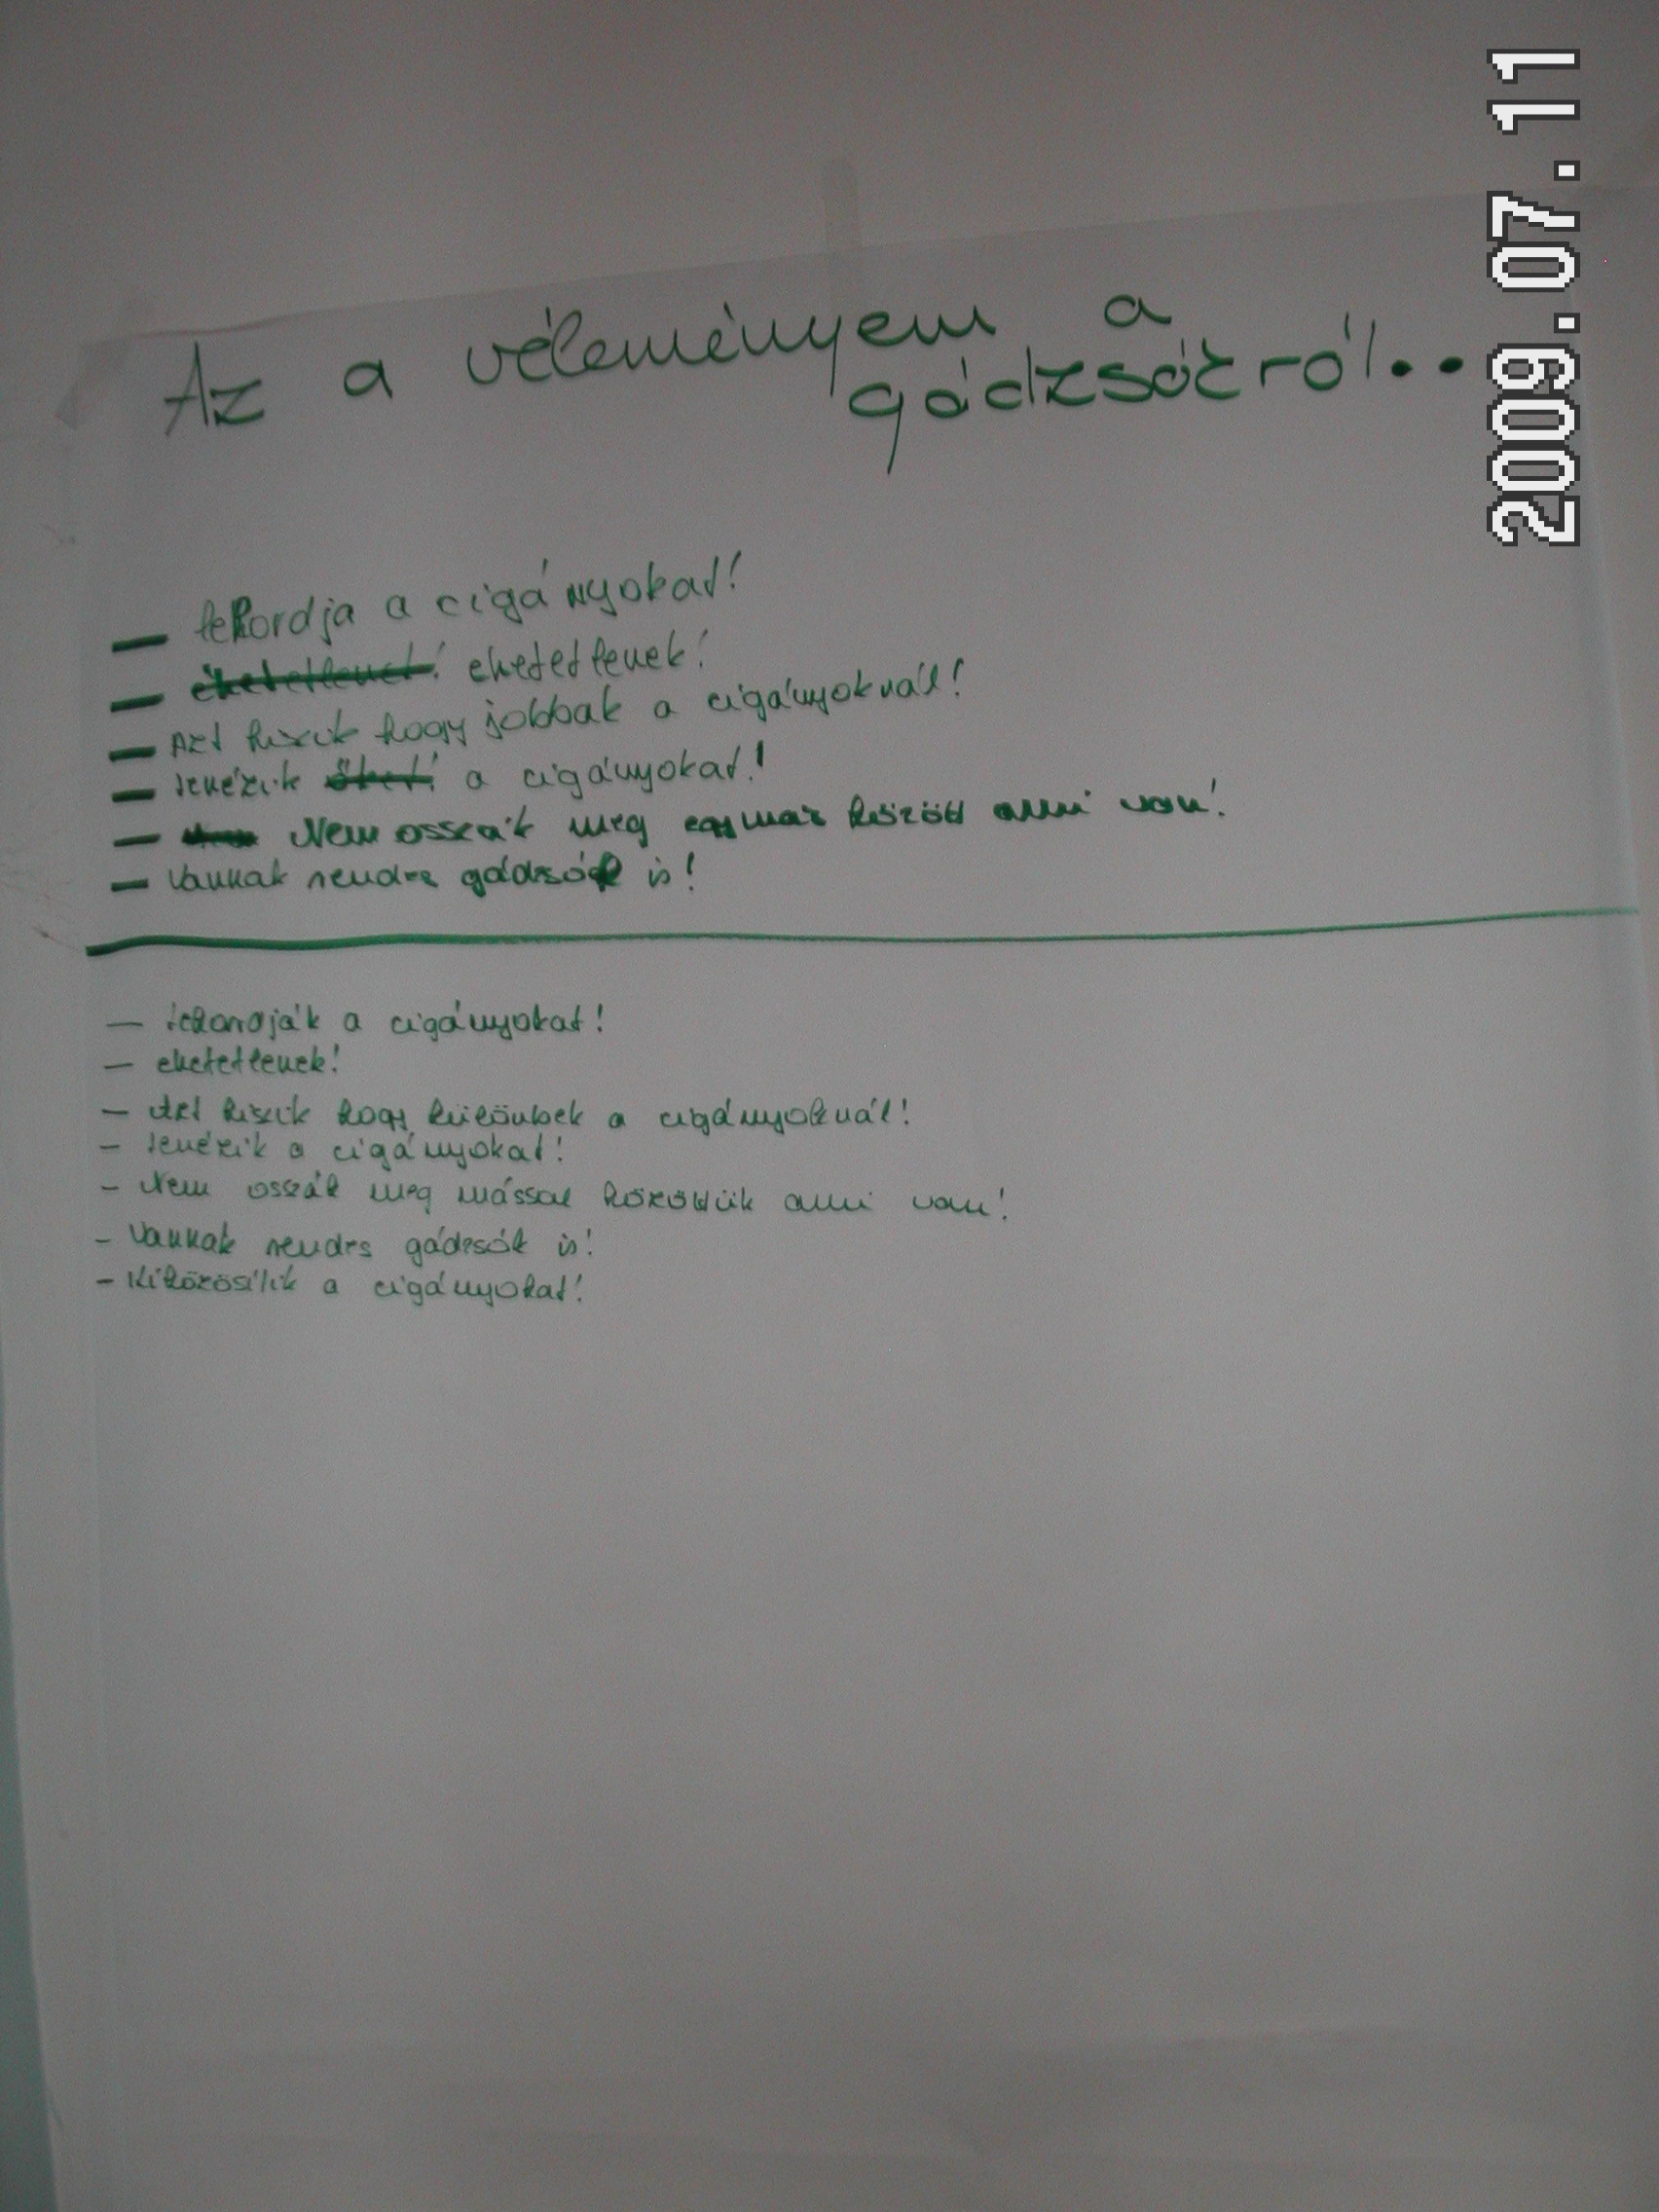 Az a véleményem a
gádzsókról..
2009.07.11
— lekordja a cigányokat!
— ehetetlenek! ehetetlenek!
— Azt hiszik hogy jobbak a cigányoknál!
— lenézik őket! a cigányokat!
— Nem osszák meg egymás között ami van!
— Vannak rendes gádzsók is!
— a cigányokat!
— ehetetlenek!
— Azt hiszik hogy különbek a cigányoknál!
— lenézik a cigányokat!
— Nem osszák meg mással közöttük ami van!
— Vannak rendes gádzsók is!
— Kiközösítik a cigányokat!